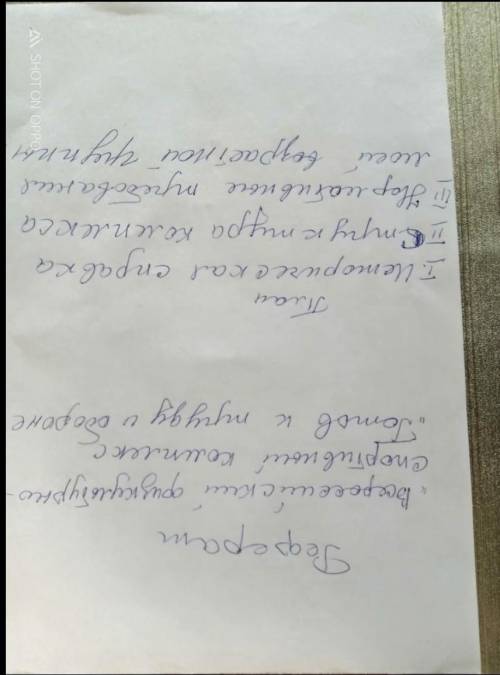 Реферат
"Всероссийский физкультурно-
спортивный комплекс
"Готов к труду и обороне
План
I. Историческая справка
II Структура комплекса
III Нормативные требования
моей возрастной группы
SHOT ON OPPO